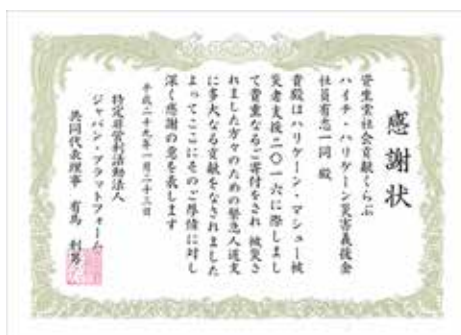 感謝状
資生堂社会貢献くらぶ
ハイチ・ハリケーン災害義援金
社員有志一同 殿
貴殿はハリケーン・マシュー被
災者支援二〇一六に際しまし
て貴重なるご寄付をされ 被災さ
れました方々のための緊急人道支
に多大なる貢献をなされました
よってここにそのご厚情に対し
深く感謝の意を表します
平成二十九年一月二十三日
特定非営利活動法人
ジャパン・プラットフォーム
共同代表理事 有馬 利男